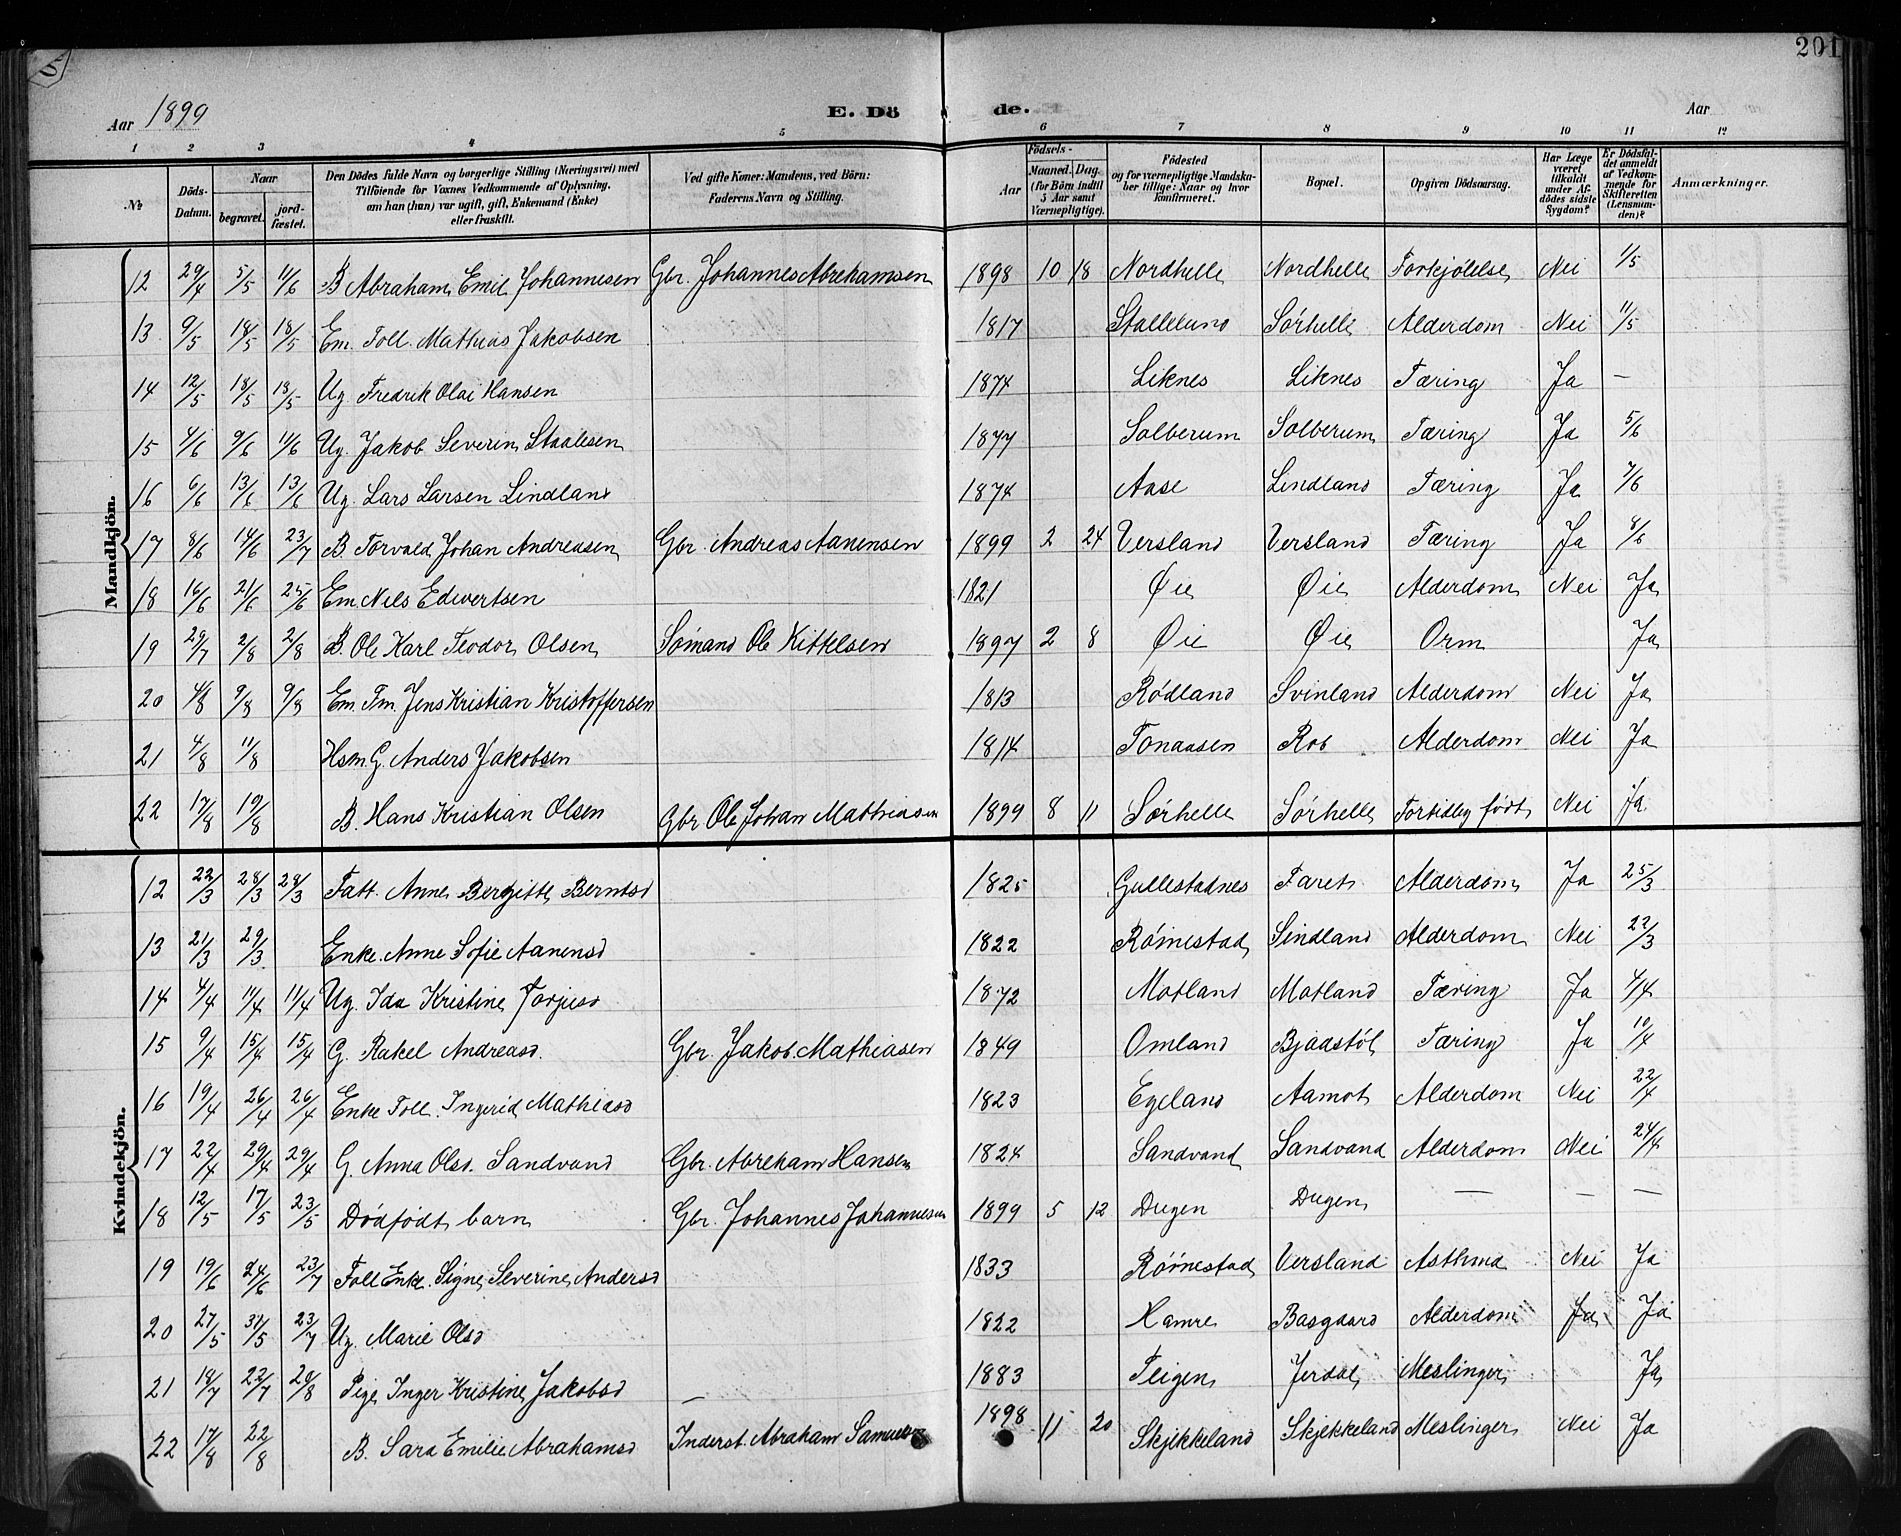 5
201
Aar 1899 E. Dö de. Aar
1 2 3 4 5 6 7 8 9 10 11 12
№ Döds-Datum. Naar begravet. jord-fæstet. Den Dödes fulde Navn og borgerlige Stilling (Næringsvei) med Tilföiende for Voxnes Vedkommende af Oplysning, om han (hun) var ugift, gift, Enkemand (Enke) eller fraskilt. Ved gifte Koner: Mandens, ved Börn: Faderens Navn og Stilling. Födsels- Aar Maaned. Dag. (for Börn indtil 5 Aar samt Værnepligtige). Födested og for værnepligtige Mandskaber tillige: Naar og hvor konfirmeret. Bopæl. Opgiven Dödsaarsag. Har Læge været tilkaldt under Afdödes sidste Sygdom? Er Dödsfaldet anmeldt af Vedkommende for Skifteretten (Lensmanden)? Anmærkninger.
Mandkjön.
12 29/4 5/5 11/6 B Abraham Emil Johannesen Gbr. Johannes Abrehamsen 1898 10 18 Nordhelle Nordhelle Forkjølelse Nei 1/5
13 9/5 18/5 18/5 Em. Foll. Mathias Jakobsen 1817 Stallelund Sørhelle Alderdom Nei 11/5
14 12/5 18/5 18/5 Ug. Fredrik Olai Hansen 1874 Liknes Liknes Tæring Ja —
15 4/6 9/6 11/6 Ug. Jakob Severin Staalesen 1877 Solberum Solberum Tæring Ja 5/6
16 6/6 13/6 13/6 Ug. Lars Larsen Lindland 1874 Aase Lindland Tæring Ja 7/6
17 8/6 14/6 23/7 B. Torvald Johan Andreasen Gbr. Andreas Aanensen 1899 2 24 Versland Versland Tæring Ja 8/6
18 16/6 21/6 25/6 Em Nils Edvertsen 1821 Øie Øie Alderdom Nei Ja
19 29/7 2/8 2/8 B. Ole Karl Teodor Olsen Sømand Ole Kittelsen 1897 2 8 Øie Øie Orm Ja
20 4/8 9/8 9/8 Em. Fm. Jens Kristian Kristoffersen 1813 Rødland Svinland Alderdom Nei Ja
21 4/8 11/8 Hsm. G. Anders Jakobsen 1814 Tonaasen Rob Alderdom Nei Ja
22 17/8 19/8 B. Hans Kristian Olsen Gbr Ole Johan Mathiasen 1899 8 11 Sørhelle Sørhelle Fortidlig født Nei Ja
Kvindekjön.
12 22/3 28/3 28/3 Fatt. Anne Bergitte Berntsd 1825 Gullestadnes Faret Alderdom Ja 25/3
13 21/3 29/3 Enke. Anne Sofie Aanensd 1822 Røinestad Sindland Alderdom Nei 22/3
14 4/4 11/4 11/4 Ug. Ida Kristine Torjusd 1872 Motland Motland Tæring Ja 4/4
15 9/4 15/4 15/4 G. Rakel Andreasd. Gbr. Jakob Mathiasen 1849 Omland Bjaastøl Tæring Ja 10/4
16 19/4 26/4 26/4 Enke Foll. Ingerid Mathiasd 1823 Egeland Aamot Alderdom Nei 22/4
17 22/4 29/4 29/4 G. Anna Olsd. Sandvand Gbr. Abreham Hansen 1824 Sandvand Sandvand Alderdom Nei 24/4
18 12/5 17/5 23/5 Dødfødt barn Gbr. Johannes Johannesen 1899 5 12 Dugen Dugen — — —
19 19/6 24/6 23/7 Foll Enke. Signe Severine Andersd 1833 Røinestad Versland Asthma Nei Ja
20 27/5 31/5 23/7 Ug. Marie Olsd 1822 Hamre Basgaard Alderdom Ja Ja
21 18/7 22/7 20/8 Pige Inger Kristine Jakobsd — 1883 Teigen Jerdal Meslinger Ja
22 17/8 22/8 B. Sara Emilie Abrahamsd Inderst. Abraham Samuelsen 1898 11 20 Skjekkeland Skjekkeland Meslinger Nei Ja